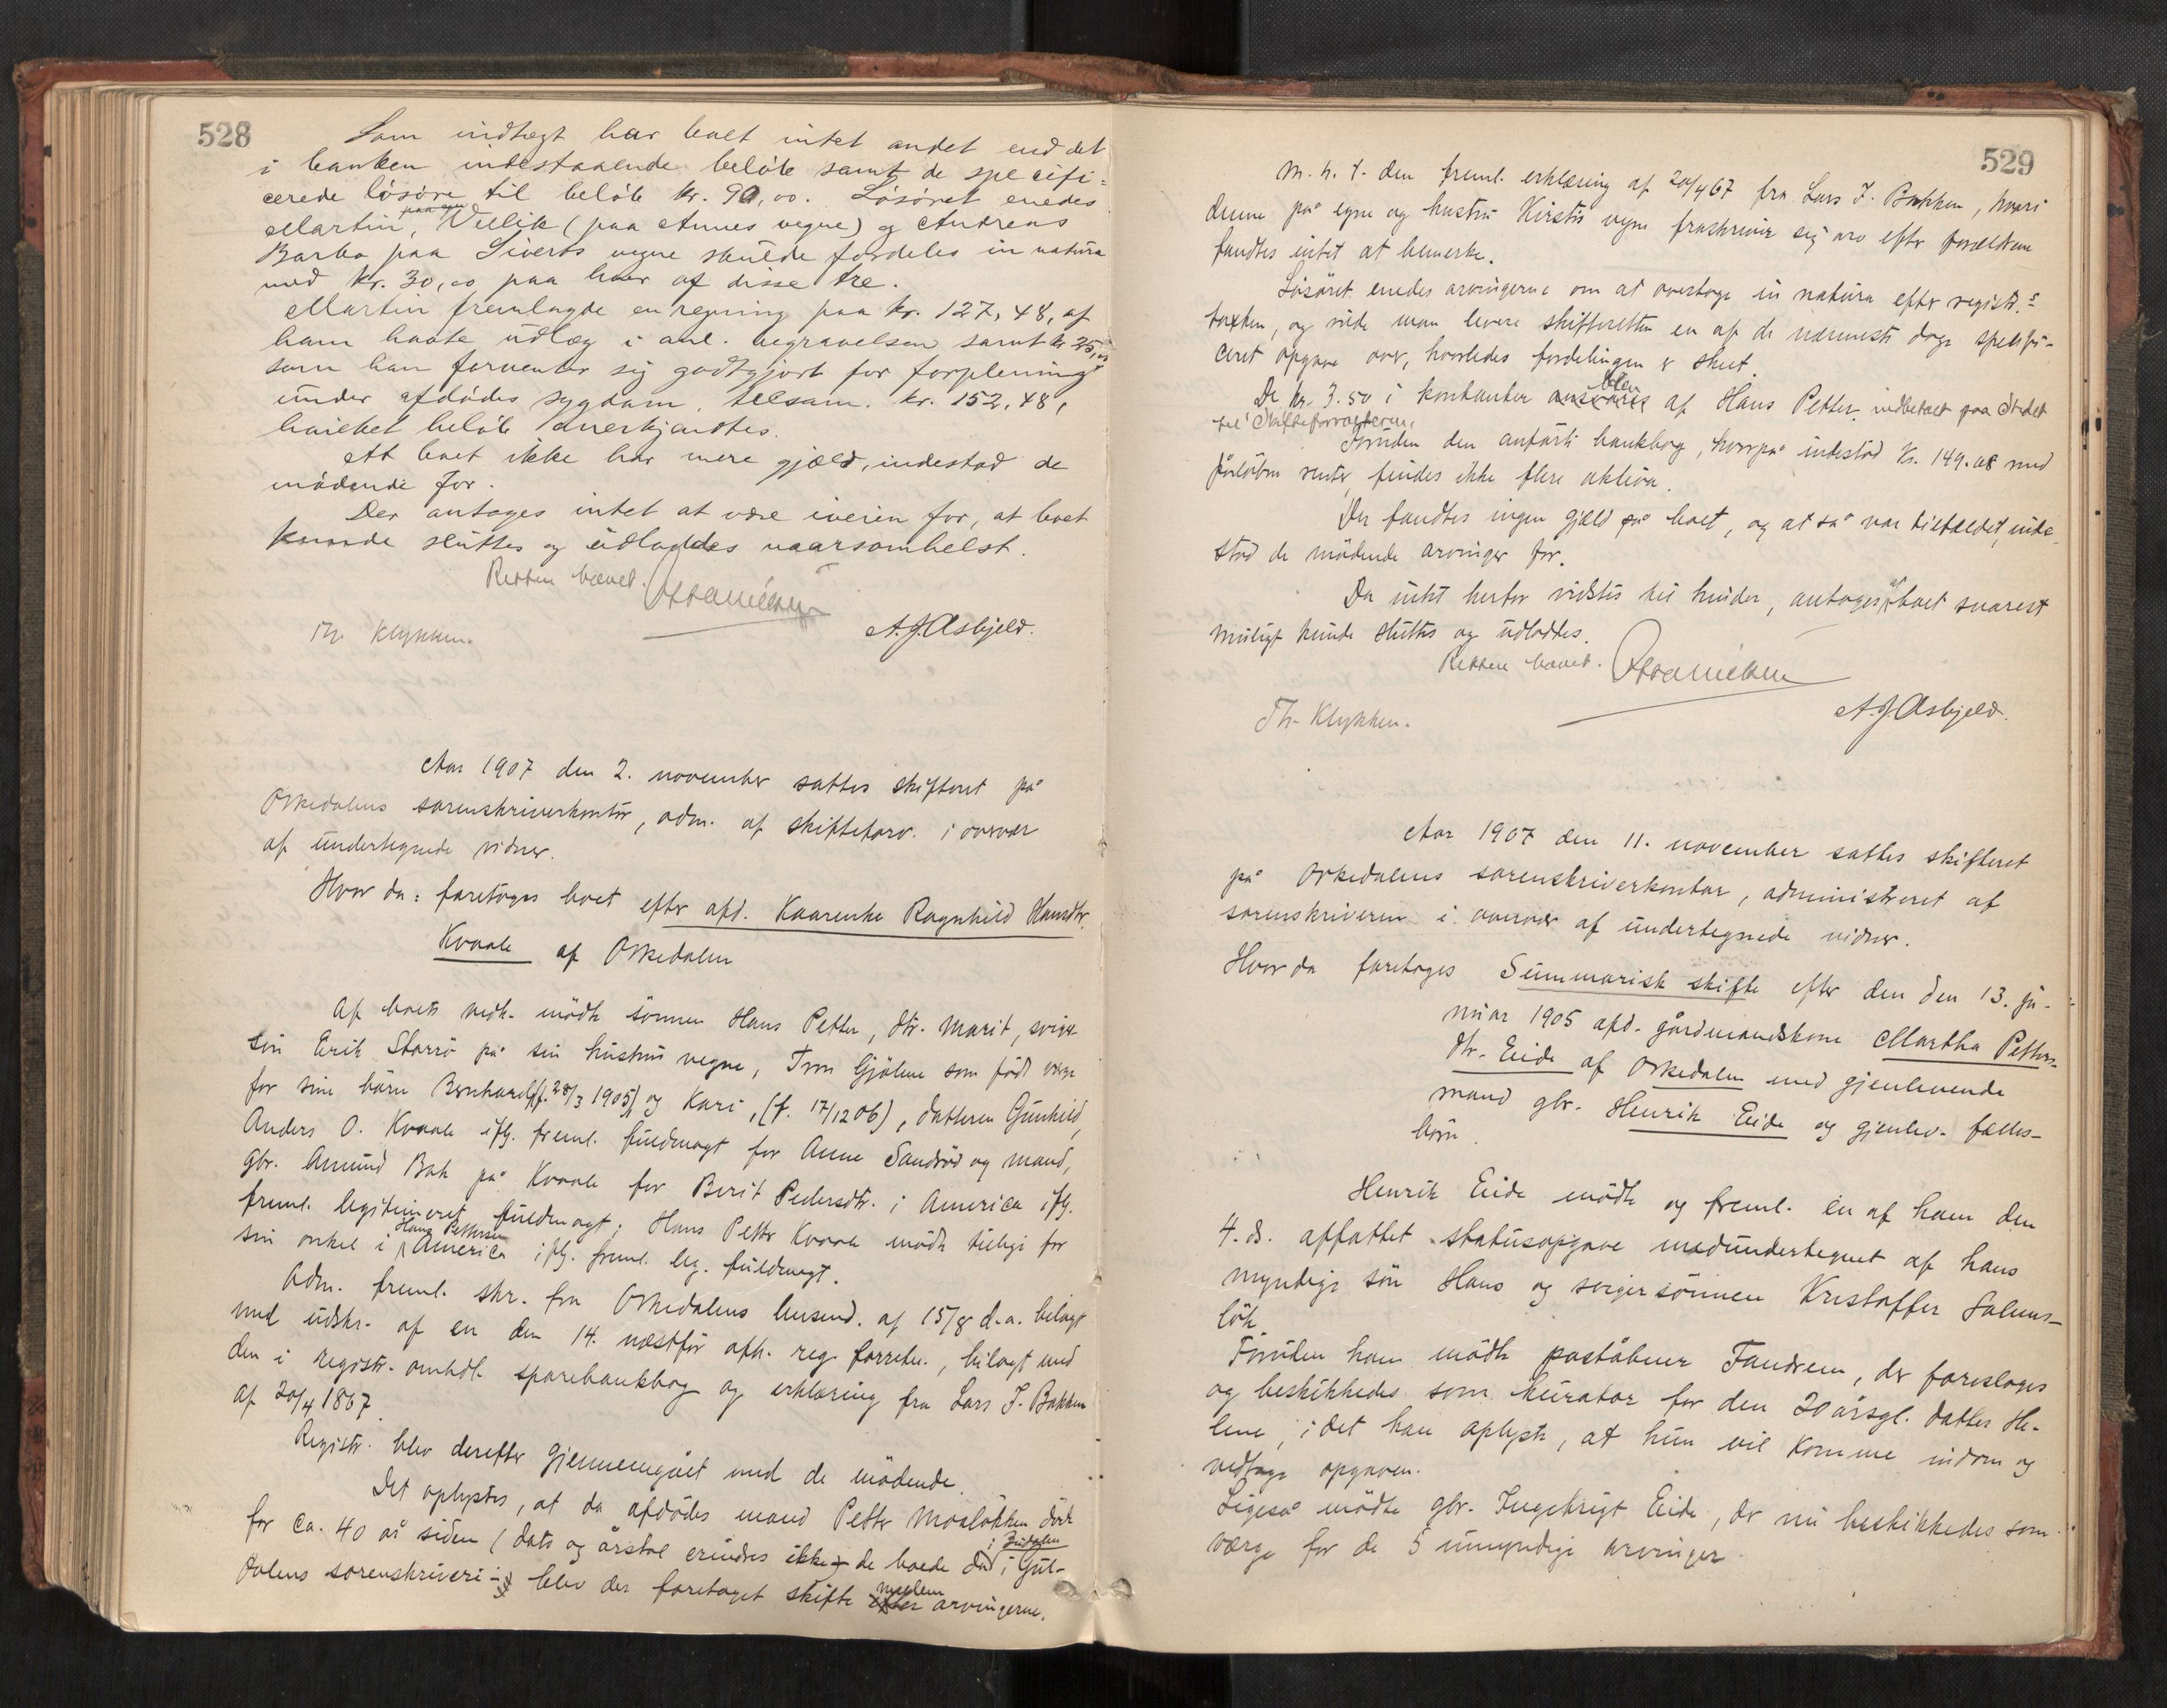 528
Som indtægt har boet intet andet end det
i banken indestaaende beløb samt de specifi=
cerede løsøre til beløb kr. 90,00. Løsøret enedes
Martin, paa egne Vullik (paa Annes vegne) og Andreas
Barbo paa Siverts vegne skulde fordeles in natura
med kr. 30,00 paa hver af disse tre.
Martin fremlagde en regning paa kr. 127,48, af
ham havte udlæg i anl. begravelsen samt kr 25,00
som han forventer sig godtgjort for forpleining
under afdødes sygdom, tilsam. kr. 152,48,
hvilket beløb anerkjendtes.
At boet ikke har mere gjæld, indestod de
mødende for.
Der antages intet at være iveien for, at boet
kunde sluttes og udloddes naarsomhelst.
Retten hævet.
Th. Klykken.
A. J. Asbjeld.
Aar 1907 den 2. november sattes skifteret på
Orkedalens sorenskriverkontor, adm. af skifteforv. i overvær
af undertegnede vidner.
Hvor da: foretoges boet efter afd. Kaarenhe Ragnhild Hansdtr.
Kvaale af Orkedalen
Af boets vedk. mødte sønnen Hans Petter, dtr. Marit, sviger
søn Erik Storrø på sin hustrus vegne, Iver Gjølme som født værge
for sine børn Bernhard (f. 28/3 1905) og Kari, (f. 17/12 06), datteren Gunhild,
Anders O. Kvaale iflg. freml. fuldmagt for Anne Sandrød og mand,
gbr. Amund Bak på Kvaale for Berit Pedersdtr. i America iflg.
freml. legitimeret fuldmagt; Hans Petter Kvaale mødte tillige for
sin onkel i Hans Pettersen America iflg. freml. leg. fuldmagt.
Adm. freml. skr. fra Orkedalens lensmd. af 15/8 d.a. bilagt
med udskr. af en den 14. næstfør afh. reg. forretn., bilagt med
den i registr. omhdl. sparebankbog og erklæring fra Lars J. Bakken
af 20/4 1867.
Registr. blev derefter gjennemgået med de mødende.
Det oplystes, at da afdødes mand Petter Mosløkken døde
for ca. 40 år siden (dato og årstal erindres ikke, de boede da i Budalen i Gul-
dalens sorenskriveri -) blev der foretaget skifte efter mellem arvingerne.
529
m. h. t. den freml. erklæring af 20/4 67 fra Lars J. Bakken, hvori
denne på egne og hustru Kirstis vegne fraskriver sig arv efter forældrene
fandtes intet at bemerke.
Løsøret enedes arvingerne om at overtage in natura efter registr.s
taxten, og vilde man levere skifteretten en af de nærmeste dage spesifi-
ceret opgave over, hvorledes fordelingen er skeet.
De kr. 3.50 i kontanter blev af Hans Petter indbetalt paa stedet
til Skifteforvalteren.
Foruden den anførte bankbog, hvorpå indestod kr. 149.08 med
påløbne renter, findes ikke flere aktiva.
Der fandtes ingen gjæld på boet, og at så var tilfældet, inde-
stod de mødende arvinger for.
Da intet herfor vidstes til hinder, antoges at boet snarest
muligt kunde sluttes og udloddes.
Retten hævet.
Th. Klykken.
A. J. Asbjeld.
Aar 1907 den 11. november sattes skifteret
på Orkedalens sorenskriverkontor, administreret af
sorenskriveren i overvær af undertegnede vidner.
Hvor da foretoges Summarisk skifte efter den den 13. ja-
nuar 1905 afd. gårdmandskone Martha Petters-
dtr. Eide af Orkedalen med gjenlevende
mand gbr. Henrik Eide og gjenlev. fælles-
børn.
Henrik Eide mødte og freml. en af ham den
4. ds. affattet statusopgave medundertegnet af hans
myndige søn Hans og svigersønnen Kristoffer Solems-
løk.
Foruden ham mødte poståbner Fandrem, der foresloges
og beskikkedes som kurator for den 20årsgl. datter He-
lene, idet han oplyste, at hun vil komme indom og
vedtage opgaven.
Ligeså mødte gbr. Ingebrigt Eide, der nu beskikkedes som
værge for de 5 umyndige arvinger.